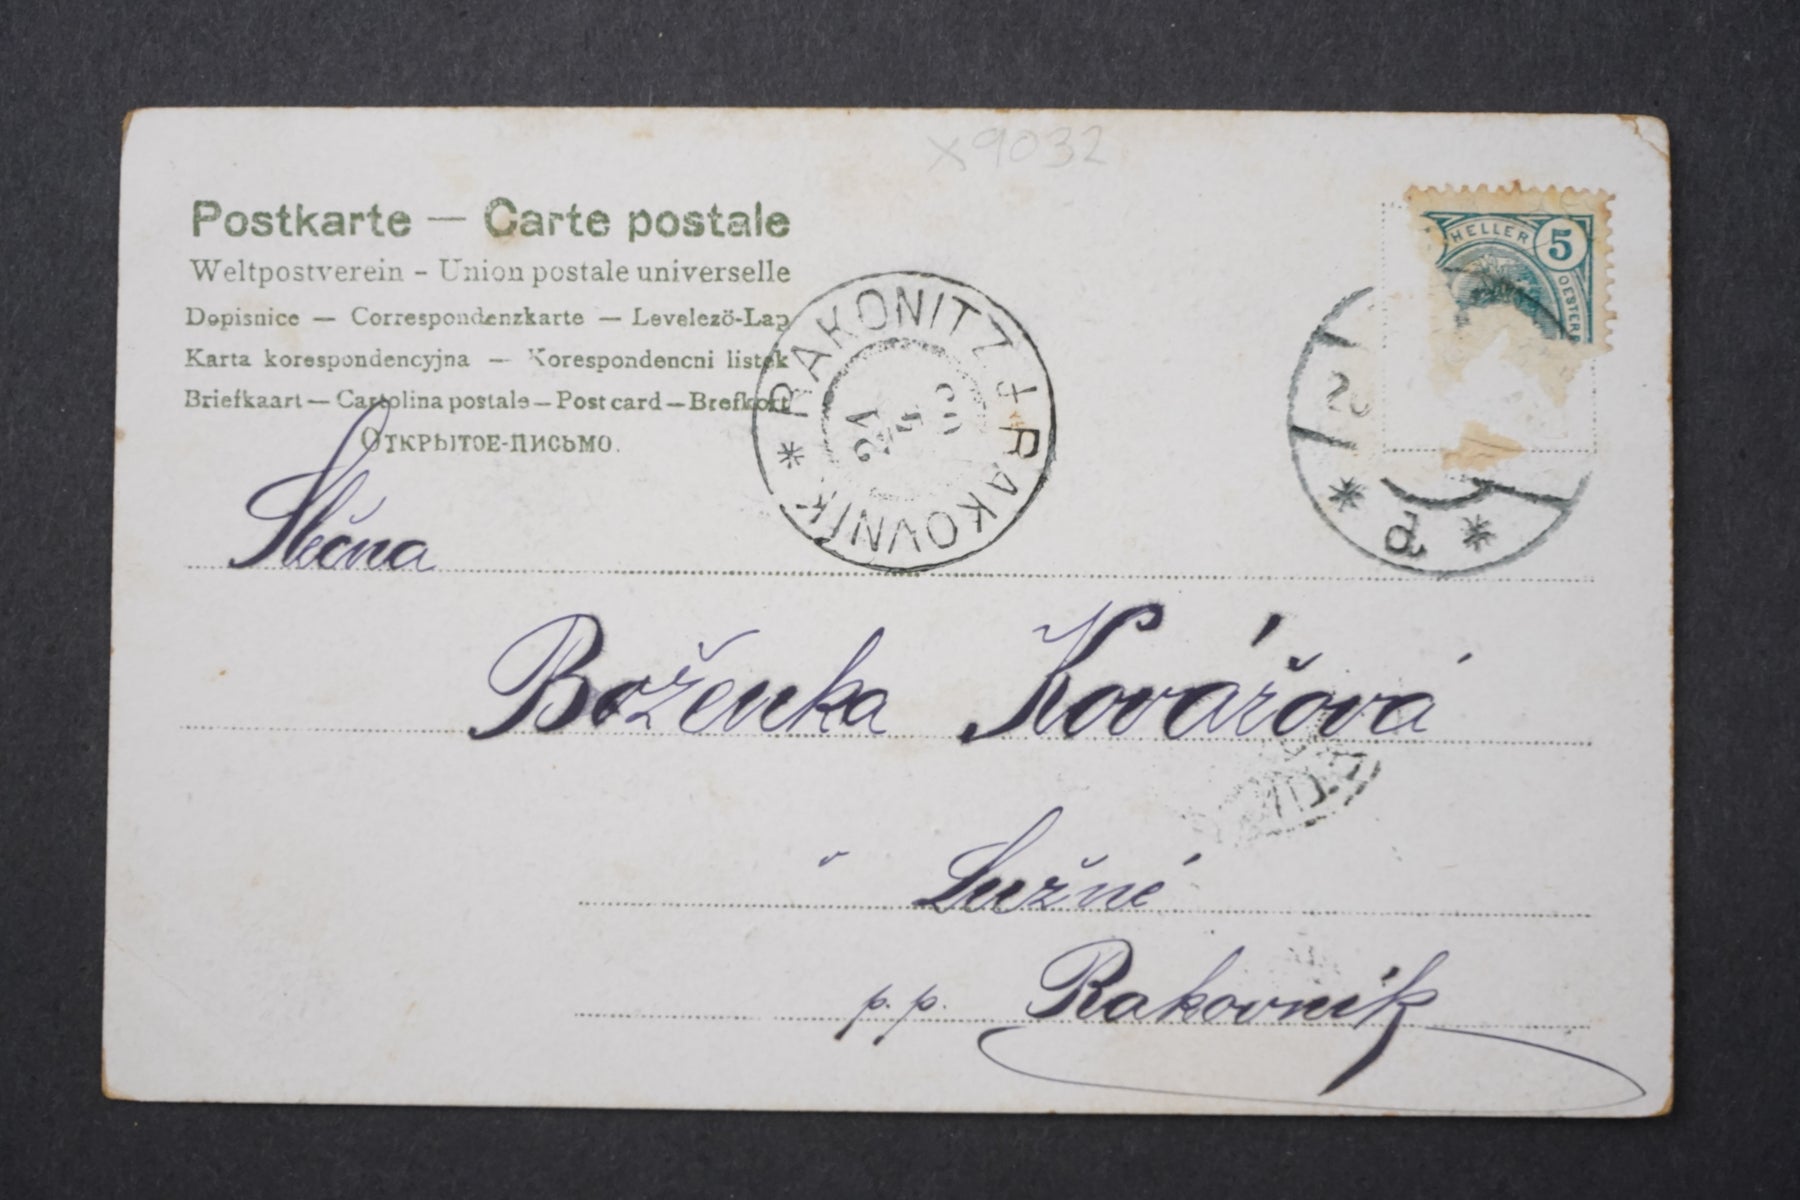 x9032
Postkarte — Carte postale
Weltpostverein - Union postale universelle
Dopisnice — Correspondenzkarte — Levelező-Lap
Karta korespondencyjna — Korespondencni listek
Briefkaart — Cartolina postale — Post card — Brefkort
Открытое-письмо.
HELLER 5
OESTERR
RAKONITZ RAKOVNÍK
21 5
d
Slečna
Boženka Kovářová
Lužné
p. p. Rakovník